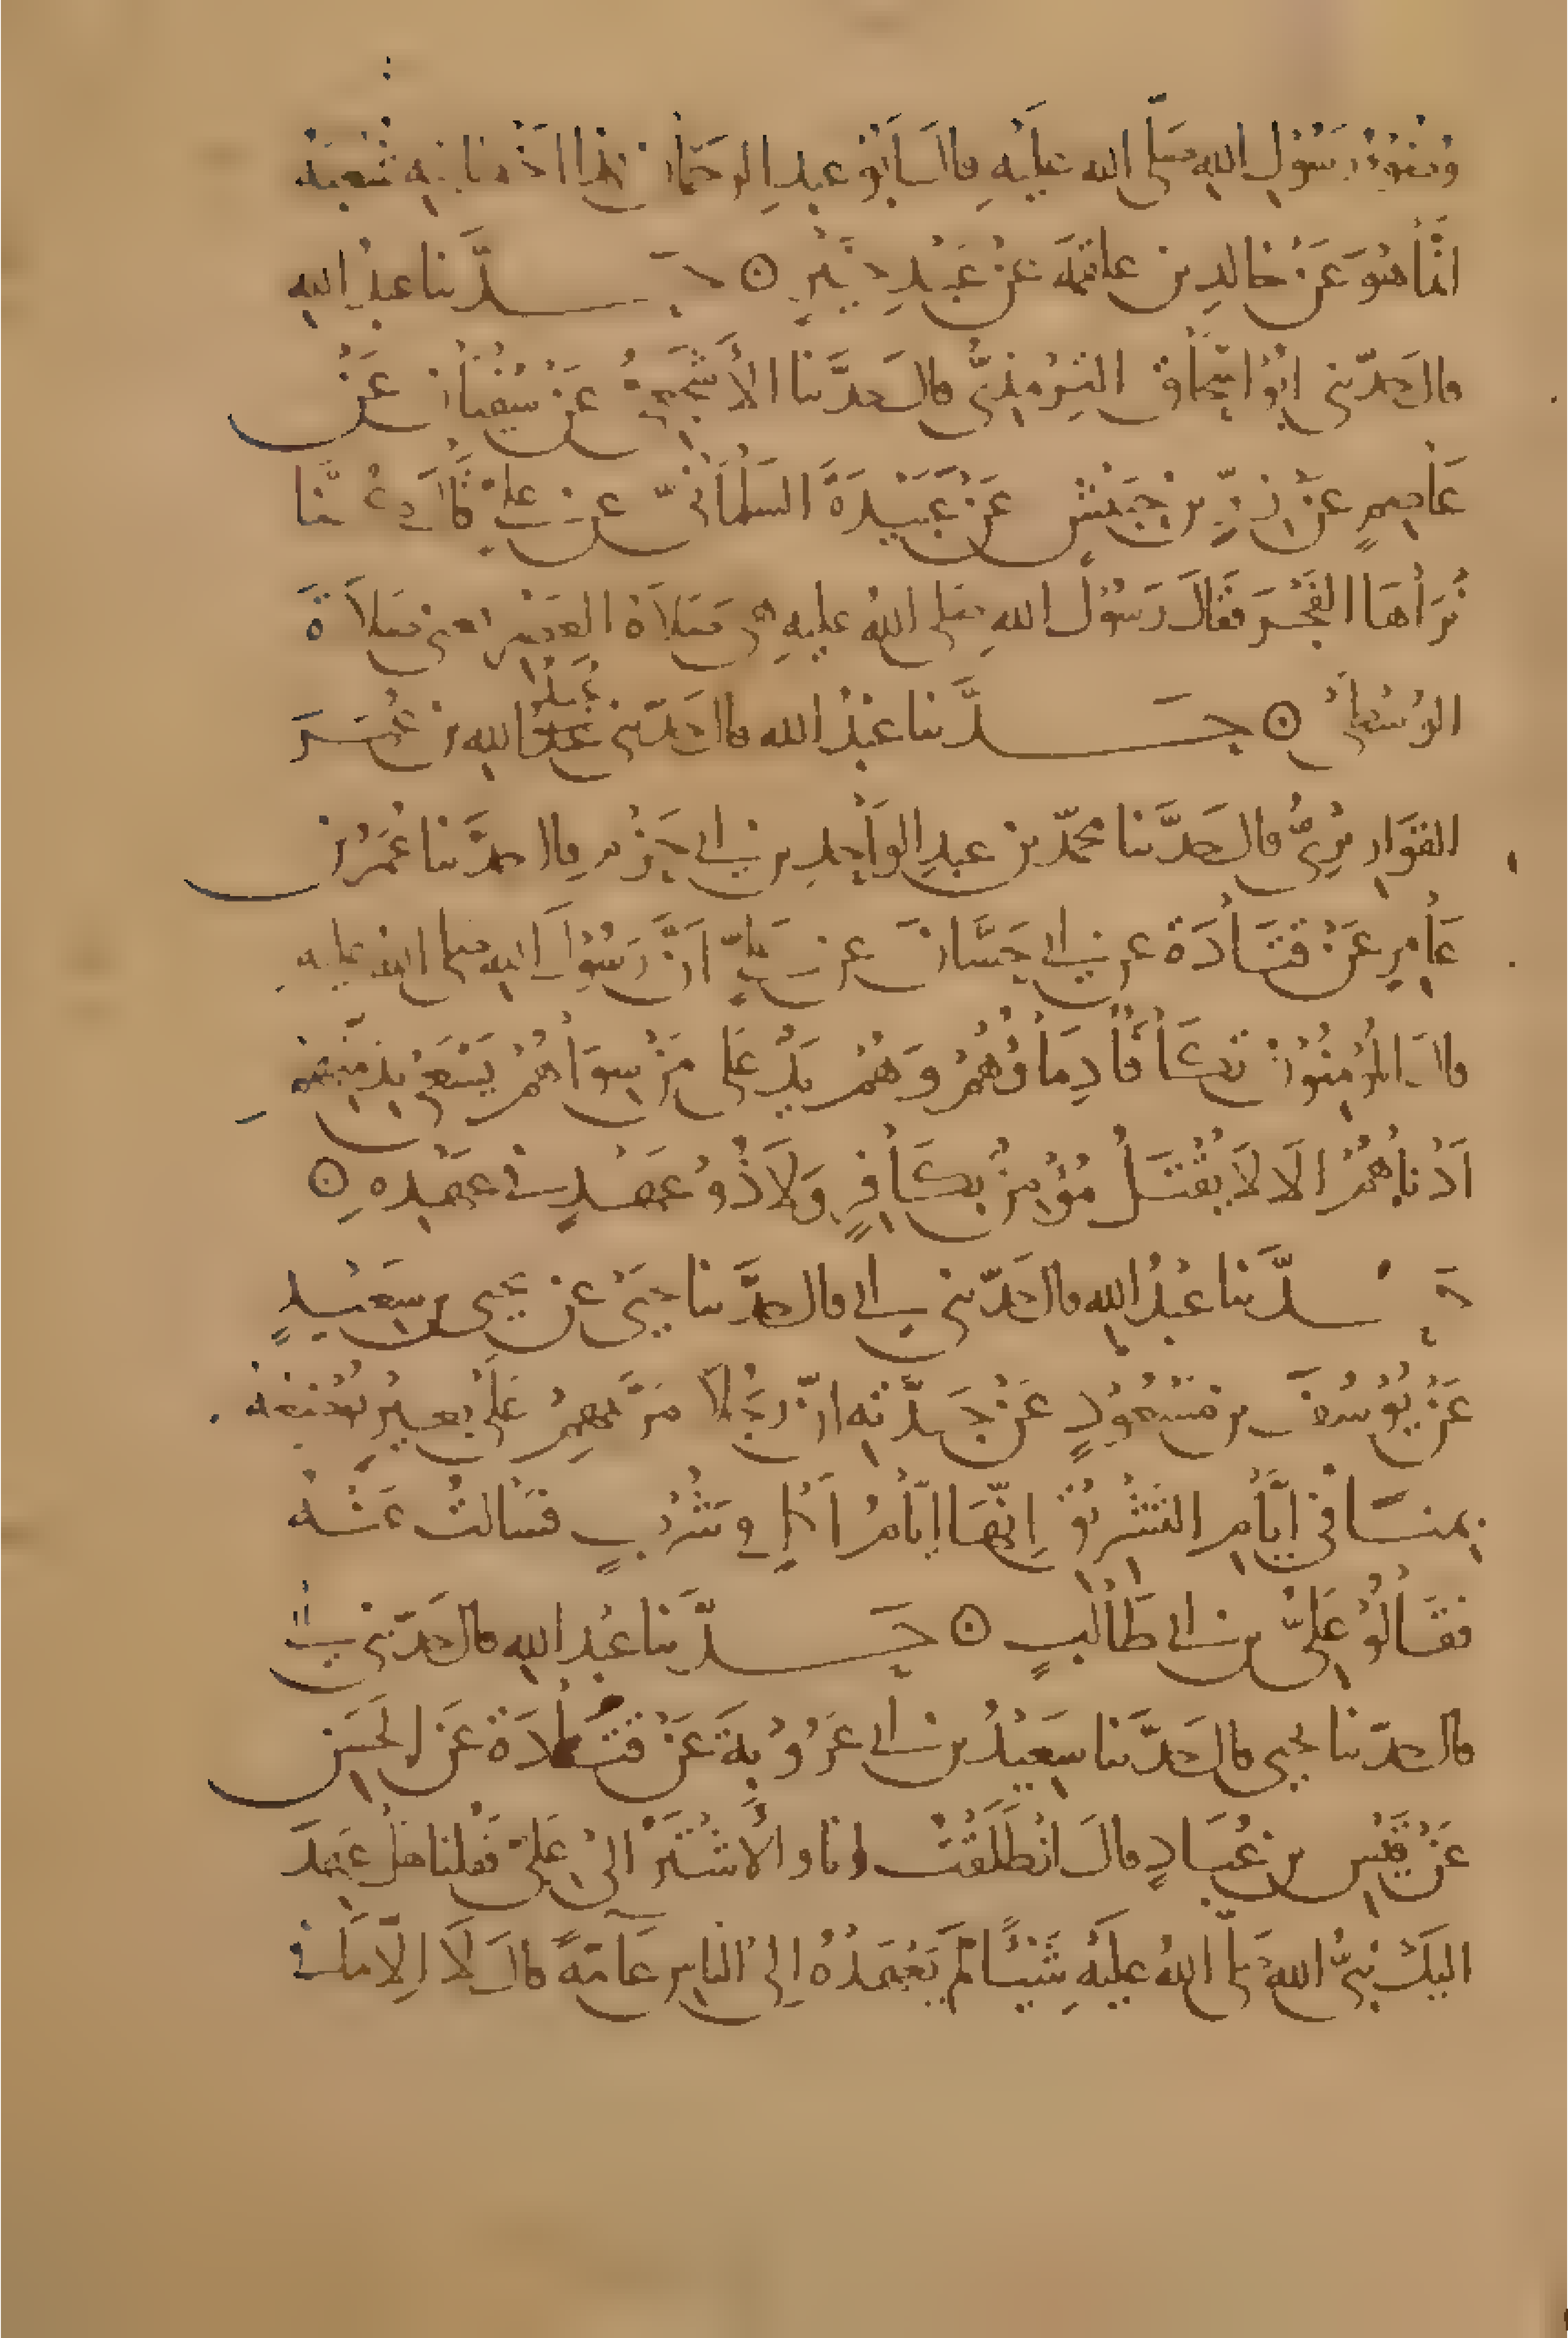 وضوء رسول الله صلى الله عليه قال أبو عبد الرحمان هذا اخطا فيه شعبة
انما هو عن خالد بن علقمة عن عبد خير ⊙ حدثنا عبد الله
قال حدثني ابو اسحاق الترمذي قال حدثنا الأشجعي عن سفيان عن
عاصم عن زر بن حبيش عن عبيدة السلماني عن علي قال كنا
نراها الفجر فقال رسول الله صلى الله عليه هي صلاة العصر يعني صلاة
الوسطى ⊙ حدثنا عبد الله قال حدثني عبيد الله بن عمر
القواريري قال حدثنا محمد بن عبد الواحد بن أبي حزم قال حدثنا عمر بن
عامر عن قتادة عن أبي حسان عن علي أن رسول الله صلى الله عليه
قال المؤمنون تكافأ دماؤهم وهم يد على من سواهم يسعى بذمتهم
أدناهم الا لا يقتل مؤمن بكافر ولا ذو عهد في عهده ⊙
حدثنا عبد الله قال حدثني أبي قال حدثنا يحيى عن يحيى بن سعيد
عن يوسف بن مسعود عن جدته ان رجلا مر بهم على بعير يوضعه
بمنا في أيام التشريق إنها ايام أكل وشرب فسالت عنه
فقالوا علي بن أبي طالب ⊙ حدثنا عبد الله قال حدثني أبي
قال حدثنا يحيى قال حدثنا سعيد بن أبي عروبة عن قتادة عن الحسن
عن قيس بن عباد قال انطلقت انا والأشتر الى علي فقلنا هل عهد
اليك نبي الله صلى الله عليه شيئا لم يعهده إلى الناس عامة قال لا إلا ما في